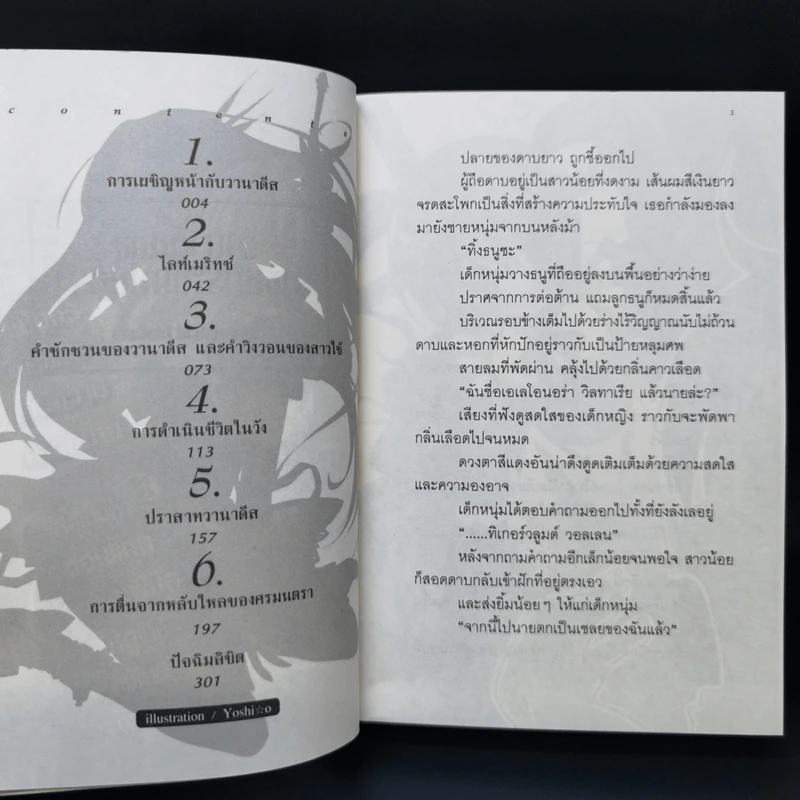 content
1.
การเผชิญหน้ากับวานาดีส
004
2.
ไลท์เมริทช์
042
3.
คำชักชวนของวานาดีส และคำวิงวอนของสาวใช้
073
4.
การดำเนินชีวิตในวัง
113
5.
ปราสาทวานาดีส
157
6.
การตื่นจากหลับใหลของศรมนตรา
197
ปัจฉิมลิขิต
301
illustration / Yoshi☆o
3
ปลายของดาบยาว ถูกชี้ออกไป
ผู้ถือดาบอยู่เป็นสาวน้อยที่งดงาม เส้นผมสีเงินยาว
จรดสะโพกเป็นสิ่งที่สร้างความประทับใจ เธอกำลังมองลง
มายังชายหนุ่มจากบนหลังม้า
“ทิ้งธนูซะ”
เด็กหนุ่มวางธนูที่ถืออยู่ลงบนพื้นอย่างว่าง่าย
ปราศจากการต่อต้าน แถมลูกธนูก็หมดสิ้นแล้ว
บริเวณรอบข้างเต็มไปด้วยร่างไร้วิญญาณนับไม่ถ้วน
ดาบและหอกที่หักปักอยู่ราวกับเป็นป้ายหลุมศพ
สายลมที่พัดผ่าน คลุ้งไปด้วยกลิ่นคาวเลือด
“ฉันชื่อเอเลโอนอร่า วิลทาเรีย แล้วนายล่ะ?”
เสียงที่ฟังดูสดใสของเด็กหญิง ราวกับจะพัดพา
กลิ่นเลือดไปจนหมด
ดวงตาสีแดงอันน่าดึงดูดเติมเต็มด้วยความสดใส
และความองอาจ
เด็กหนุ่มได้ตอบคำถามออกไปทั้งที่ยังลังเลอยู่
“......ทิเกอร์วลูมด์ วอลเลน”
หลังจากถามคำถามอีกเล็กน้อยจนพอใจ สาวน้อย
ก็สอดดาบกลับเข้าฝักที่อยู่ตรงเอว
และส่งยิ้มน้อยๆ ให้แก่เด็กหนุ่ม
“จากนี้ไปนายตกเป็นเชลยของฉันแล้ว”